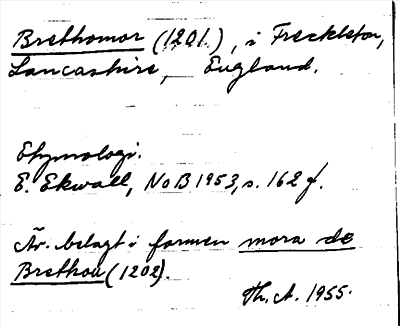 Brethomor (1201.), i Freckleton,
Lancashire, England.
Etymologi.
E. Ekwall, NoB 1953, s. 162 f.
Är belagt i formen mora de
Brethou (1202).
Th. A. 1955.